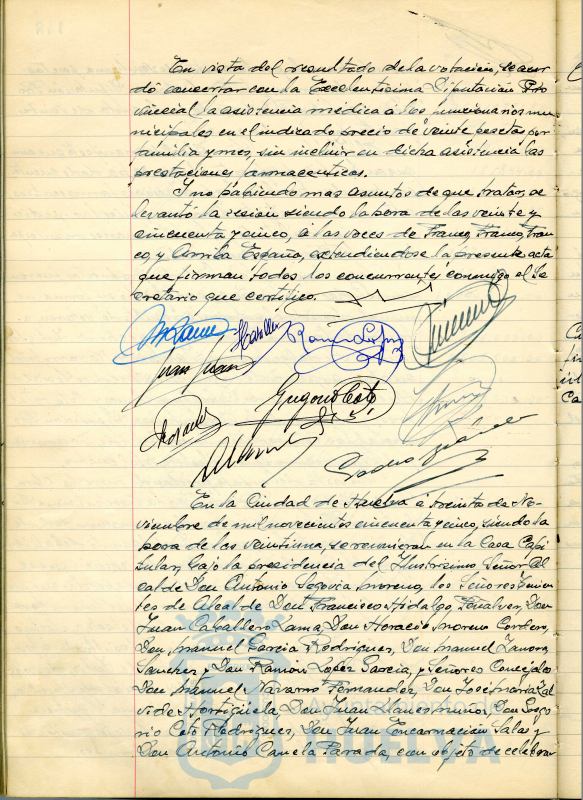 En vista del resultado de la votación, se acor
dó concertar con la Excelentísima Diputación Pro
vincial la asistencia médica á los funcionarios mu
nicipales en el indicado precio de veinte pesetas por
familia y mes, sin incluir en dicha asistencia las
prestaciones farmaceuticas.
Y no habiendo mas asuntos de que tratar, se
levantó la sesion siendo la hora de las veinte y
cincuenta y cinco, á las voces de Franco, Franco, Fran
co, y Arriba España, extendiendose la presente acta
que firman todos los concurrentes conmigo el Se
cretario que certifico.
Ramon Lopez
Juan
Gregorio Coto
Pedro
En la Ciudad de Huelva á treinta de No-
viembre de mil novecientos cincuenta y cinco, siendo la
hora de las veintiuna, se reunieron en la Casa Capi
tular, bajo la presidencia del Ilustrísimo Señor Al
calde Don Antonio Segovia Moreno, los Señores Tenien
tes de Alcalde Don Francisco Hidalgo Peñalver, Don
Juan Caballero Lama, Don Horacio Moreno Cordero,
Don Manuel Garcia Rodriguez, Don Manuel Zamora
Sanchez y Don Ramón Lopez Garcia, y Señores Concejales
Don Manuel Navarro Fernandez, Don José Maria Cal
vi de Hortigüela, Don Juan Llanes Don Grego
rio Coto Rodriguez, Don Juan Encarnacion Salas y
Don Antonio Canela Parada, con objeto de celebrar
HUELVA